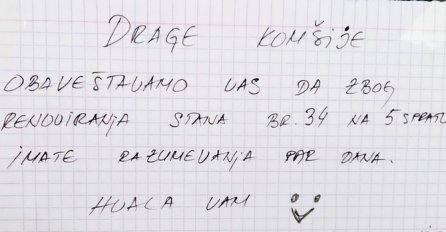 DRAGE KOMŠIJE
OBAVEŠTAVAMO VAS DA ZBOG
RENOVIRANJA STANA BR. 34 NA 5 SPRATU
IMATE RAZUMEVANJA PAR DANA.
HVALA VAM